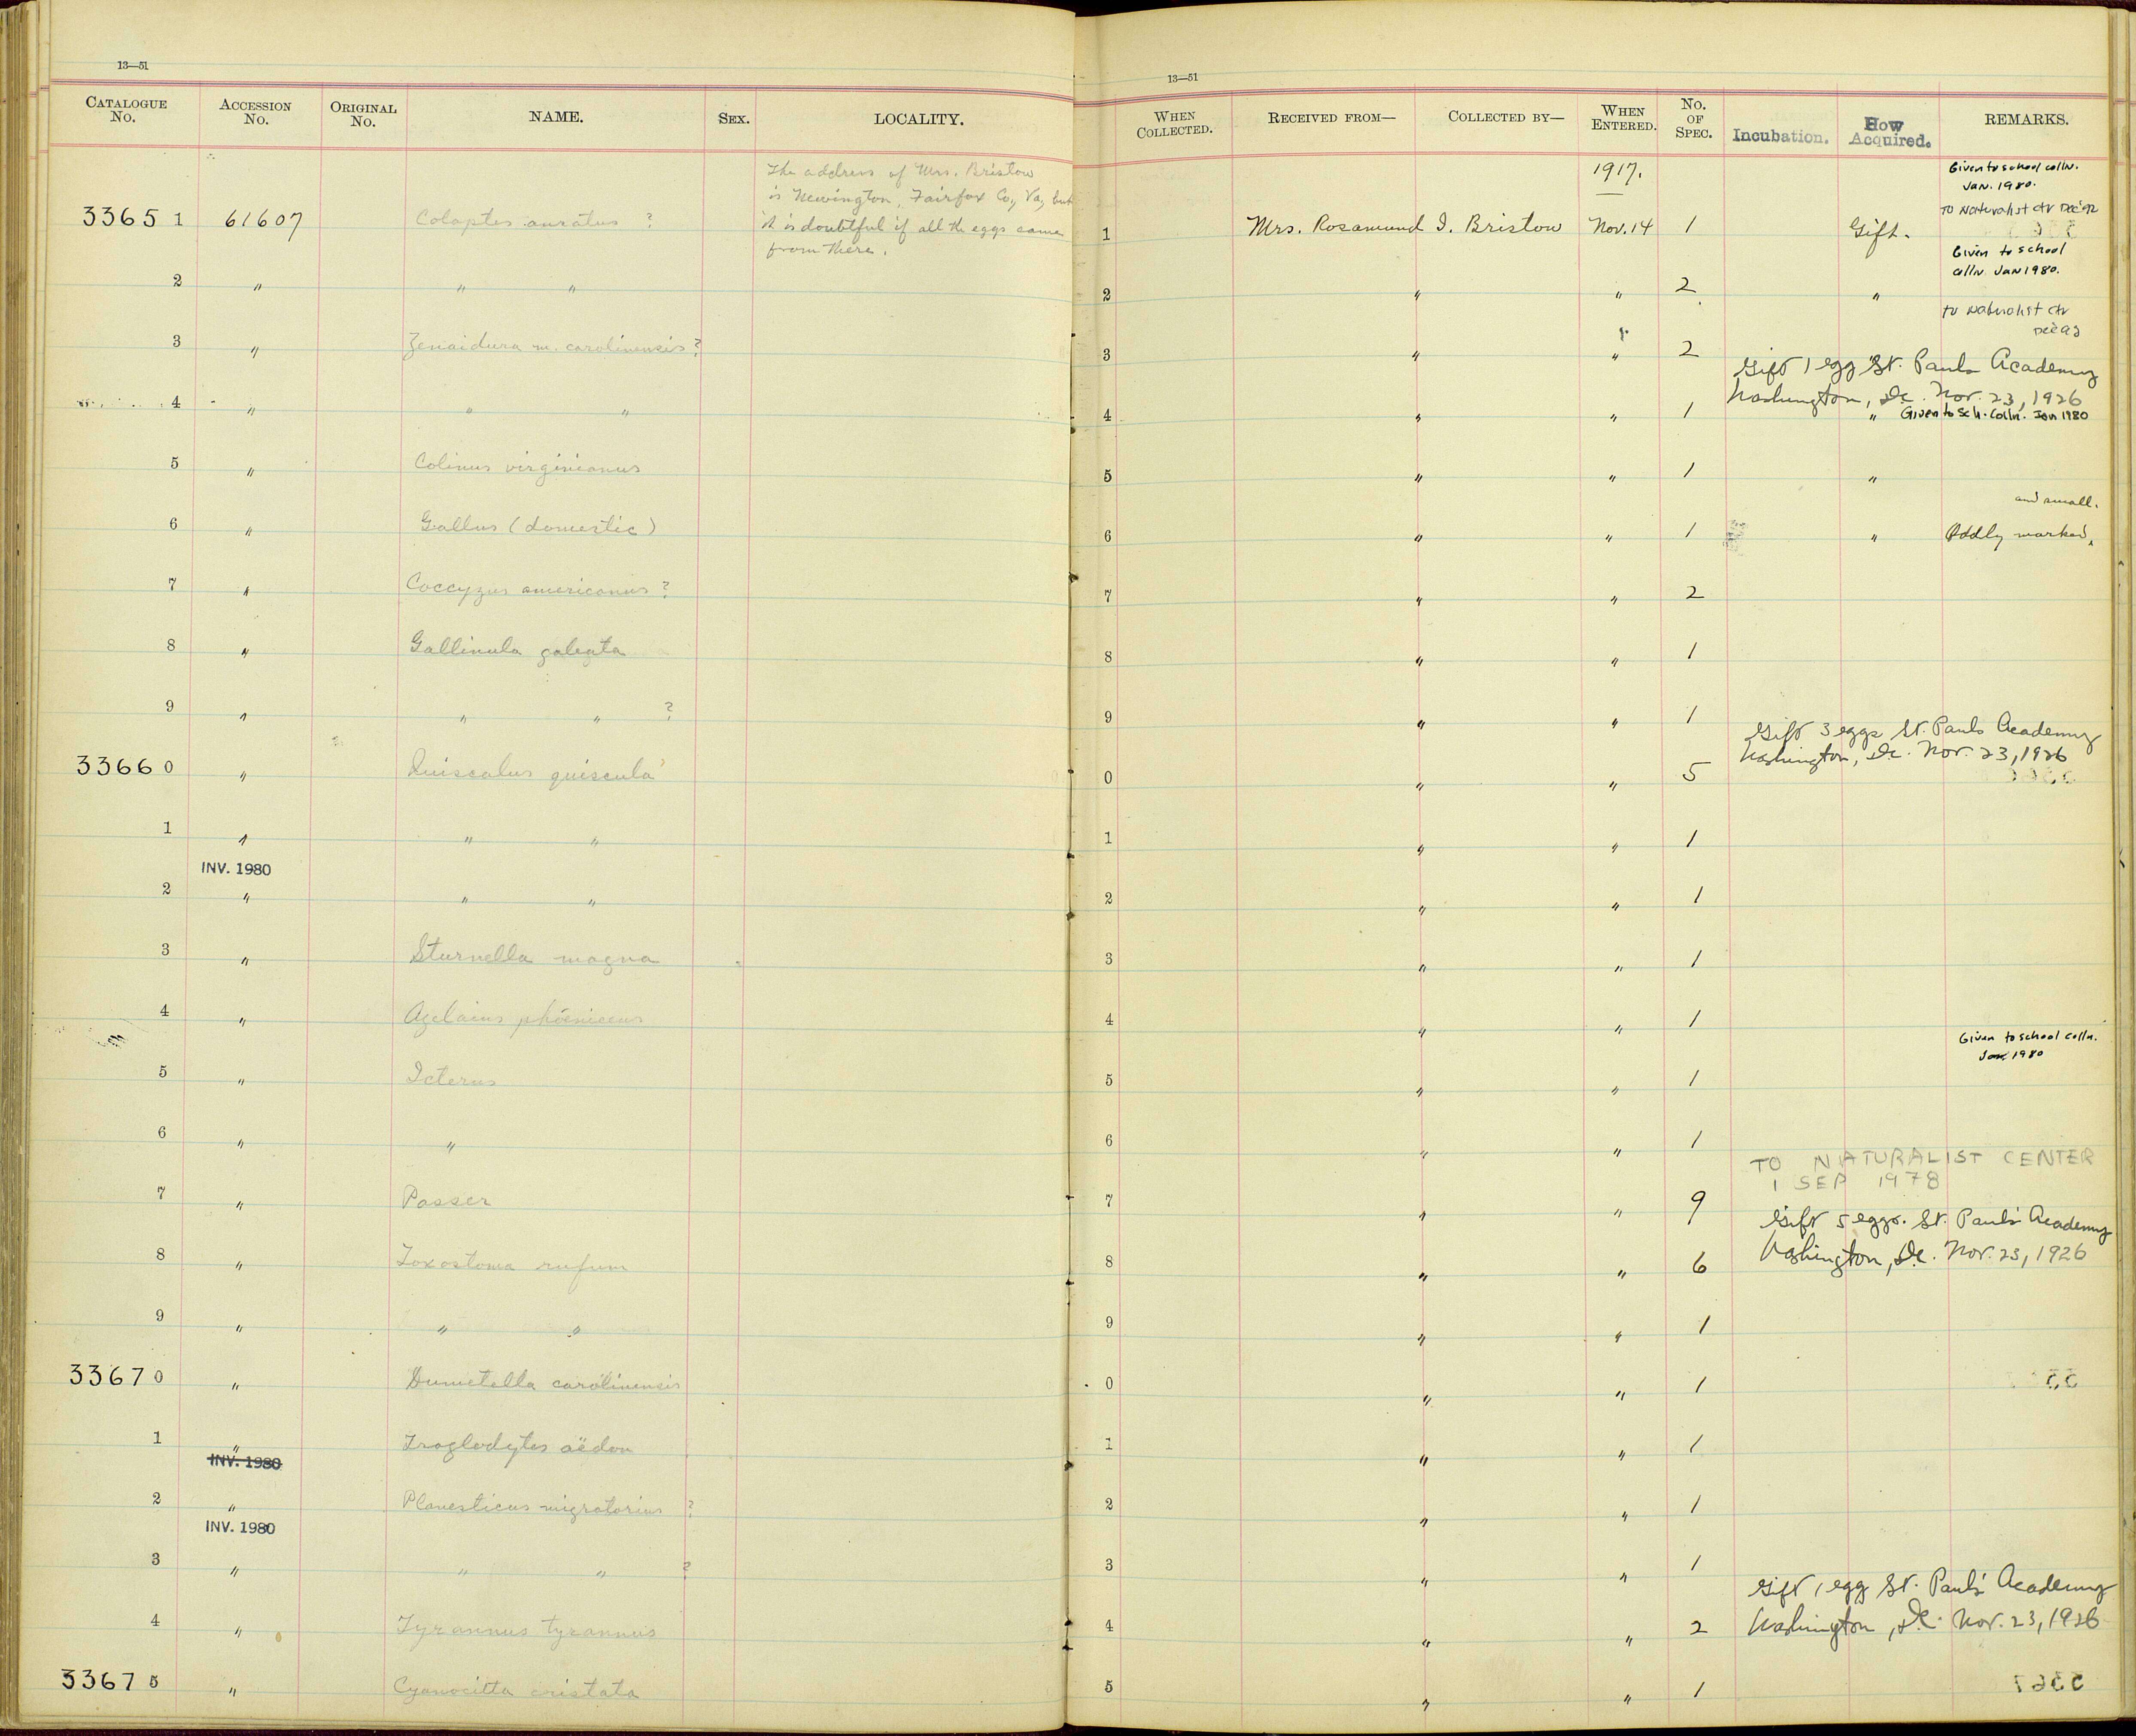 13—51
CATALOGUE No. ACCESSION No. ORIGINAL No. NAME. SEX. LOCALITY.
The address of Mrs. Bristow
is Newington, Fairfax Co., Va, but
33651 61607 Colaptes auratus ? it is doubtful if all the eggs came
from there.
2 " " "
3 " Zenaidura m. carolinensis ?
4 " " "
5 " Colinus virginianus
6 " Gallus (domestic)
7 " Coccyzus americanus ?
8 " Gallinula galeata
9 " " " ?
33660 " Quiscalus quiscula
1 " " "
INV. 1980
2 " " "
3 " Sturnella magna
4 " Agelaius phoeniceus
5 " Icterus
6 " "
7 " Passer
8 " Toxostoma rufum
9 " " "
33670 " Dumetella carolinensis
1 " Troglodytes aëdon
INV. 1980
2 " Planesticus migratorius ?
INV. 1980
3 " " " ?
4 " Tyrannus tyrannus
33675 " Cyanocitta cristata
13—51
WHEN COLLECTED. RECEIVED FROM— COLLECTED BY— WHEN ENTERED. No. OF SPEC. Incubation. How Acquired. REMARKS.
1917. Given to school colln.
Jan. 1980.
To Naturalist ctr Dec 92
1 Mrs. Rosamund I. Bristow Nov. 14 1 Gift.
Given to school
colln. Jan 1980.
2 " " 2 "
To Naturalist ctr
Dec 92
3 " " 2 "
Gift 1 egg St. Pauls Academy
Washington, D.C. Nov. 23, 1926
4 " " 1 " Given to Sch. Colln. Jan 1980
5 " " 1 "
and small.
6 " " 1 " Oddly marked,
7 " " 2
8 " " 1
9 " " 1
Gift 3 eggs St. Pauls Academy
Washington, D.C. Nov. 23, 1926
0 " " 5
1 " " 1
2 " " 1
3 " " 1
4 " " 1
Given to school colln.
Jan. 1980
5 " " 1
6 " " 1
TO NATURALIST CENTER
1 SEP 1978
7 " " 9
Gift 5 eggs. St. Paul's Academy
8 " " 6 Washington, D.C. Nov. 23, 1926
9 " " 1
0 " " 1
1 " " 1
2 " " 1
3 " " 1
Gift 1 egg St. Paul's Academy
4 " " 2 Washington, D.C. Nov. 23, 1926
5 " " 1